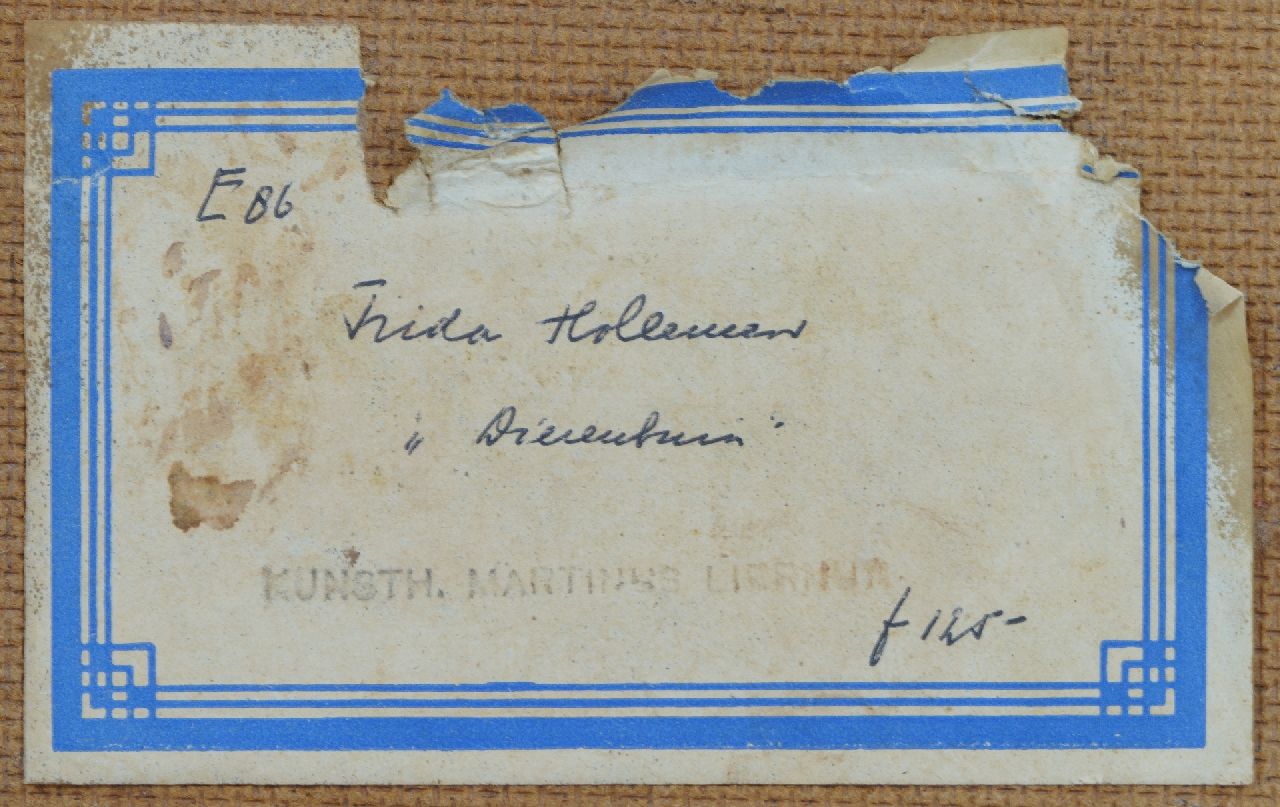 E 86
Frida Holleman
„ Dierentuin "
KUNSTH. MARTINUS LIERNUR
f 125-